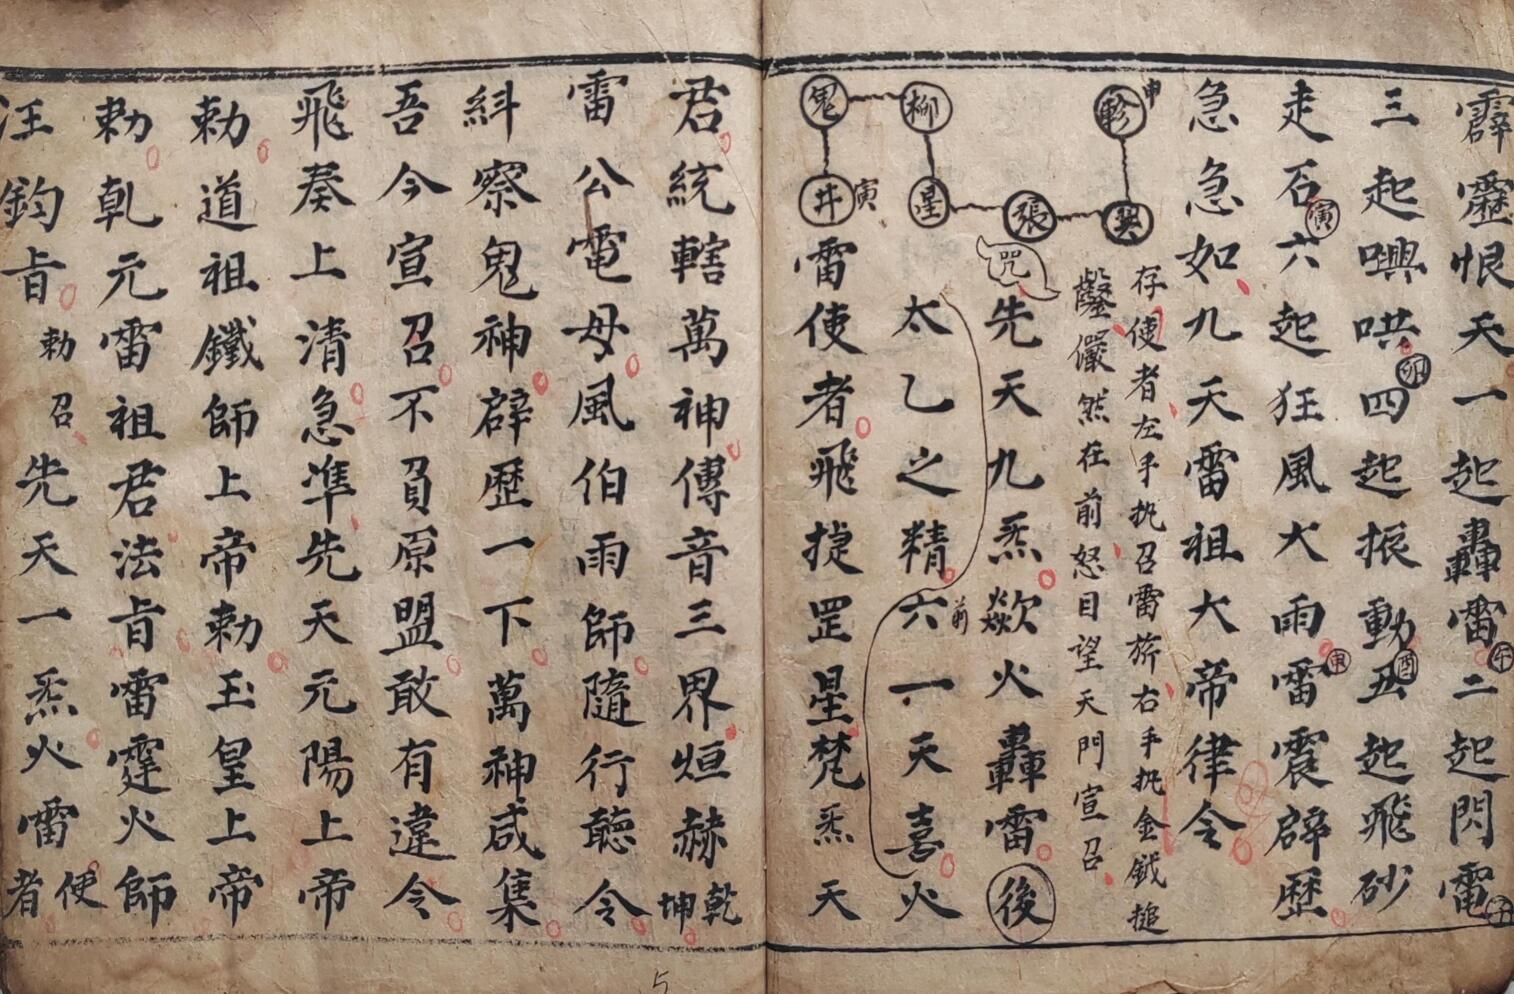 霹靂恨天一起轟雷午二起閃電子
三起嶼哄卯四起振動酉五起飛砂
走石寅六起狂風大雨申雷震辟歷
急急如九天雷祖大帝律令
軫申
翼
張
星
柳
鬼
井寅
存使者左手执召雷旂右手执金鉞搥
儼然在前怒目望天門宣召
咒
先天九炁歘火轟雷後
太乙之精六一天喜火
前
雷使者飛捷罡星梵炁天
君統轄萬神傳音三界烜赫乾坤
雷公電母風伯雨師隨行聽令
糾察鬼神辟歷一下萬神咸集
吾今宣召不負原盟敢有違令
飛奏上清急準先天元陽上帝
勅道祖鐵師上帝勅玉皇上帝
勅乹元雷祖君法旨雷霆火師
汪鈞旨勅召先天一炁火雷使者
5